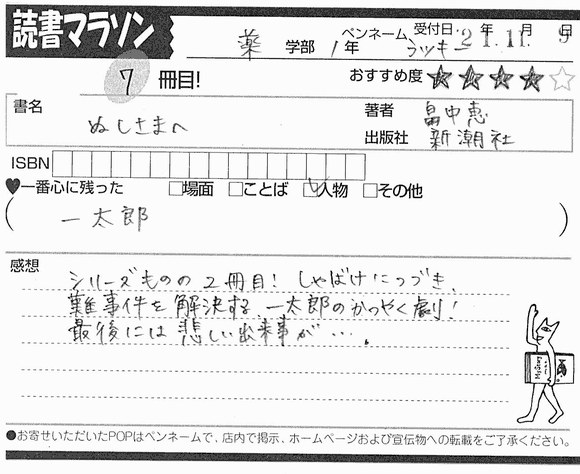 読書マラソン
薬 学部 1年 ペンネーム ラッキー 受付日 21年 11月 9日
7 冊目!
おすすめ度 ★★★★☆
書名 ぬしさまへ
著者 畠中恵
出版社 新潮社
ISBN
♥一番心に残った □場面 □ことば ☑人物 □その他
(一太郎)
感想
シリーズものの2冊目!しゃばけにつづき、
難事件を解決する、一太郎のかつやく劇!
最後には悲しい出来事が…。
Mystery
●お寄せいただいたPOPはペンネームで、店内で掲示、ホームページおよび宣伝物への転載をご了承ください。